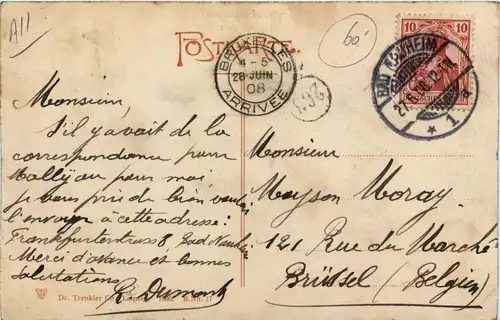 A11
POSTKARTE
60
10
10
BRUXELLES
4 - 5
28 JUIN
08
ARRIVÉE
BAD NAUHEIM
Monsieur,
S'il y'avait de la
correspondance pour
pour moi,
je vous prie de bien vouloir
l'envoyer à cette adresse:
Frankfurterstrasse 8, Bad Nauheim
Merci d'avance et bonnes
salutations
R. Dumont
Monsieur
Mayson Moray.
121 Rue du Marché
Brüssel (Belgien)
Dr. Trenkler Co., Leipzig. 1906. B.Nh. 17